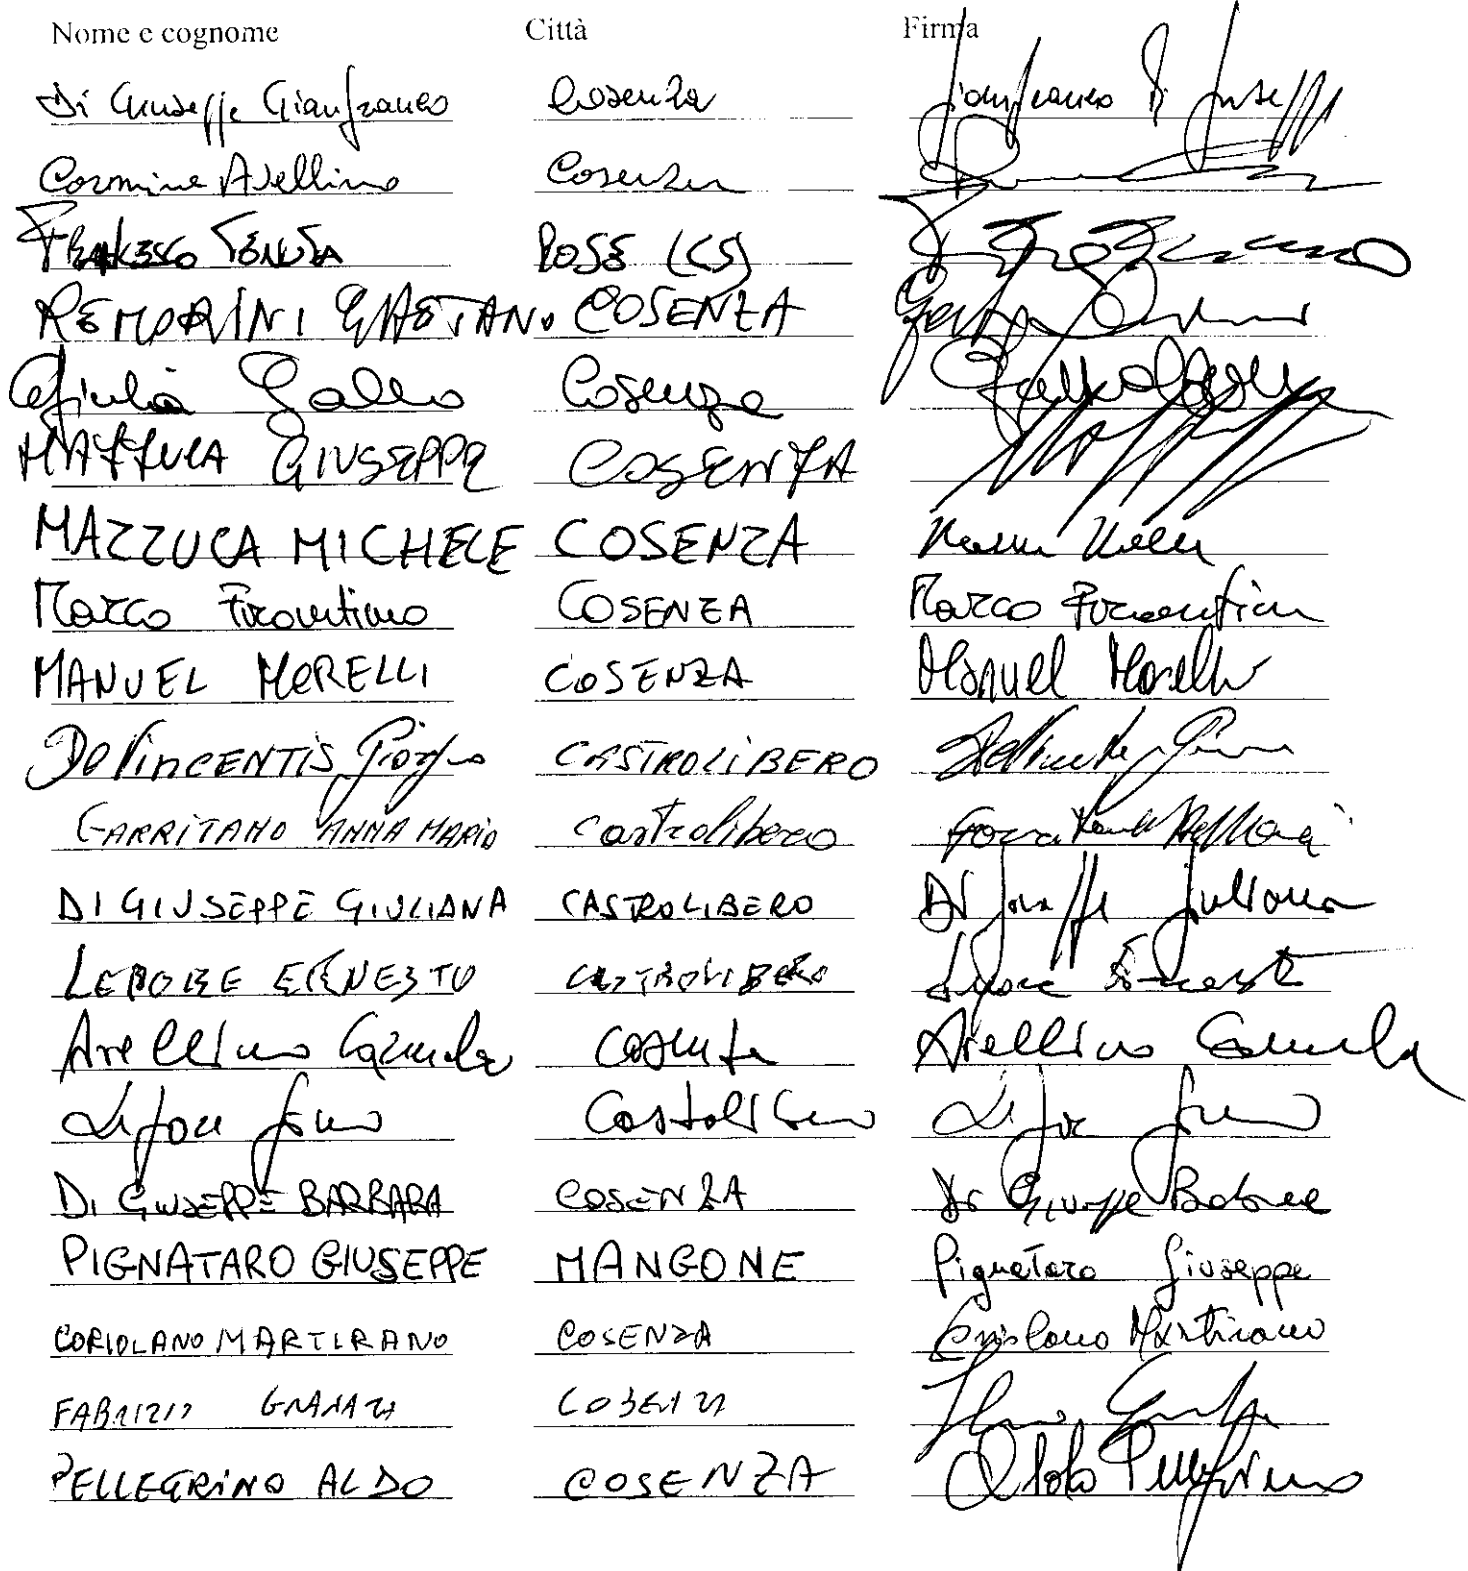 Nome e cognome Città Firma
Di Giuseppe Gianfranco Cosenza Gianfranco Di Giuseppe
Carmine Avellino Cosenza
Francesco Tenuta ROSE (CS)
REMORINI GAETANO COSENZA
Giulia Gallo Cosenza
MAZZUCA GIUSEPPE COSENZA
MAZZUCA MICHELE COSENZA
Marco Fiorentino COSENZA Marco
MANUEL MORELLI COSENZA Manuel Morelli
De VINCENTIS Giorgio CASTROLIBERO
GARRITANO ANNA MARIA Castrolibero
DI GIUSEPPE GIULIANA CASTROLIBERO Di Giuseppe Giuliana
LEPORE ERNESTO CASTROLIBERO Lepore Ernesto
Avellino Carmela Cosenza Avellino Carmela
Castrolibero
DI GIUSEPPE BARBARA COSENZA Di Giuseppe Barbara
PIGNATARO GIUSEPPE MANGONE Pignataro Giuseppe
CORIOLANO MARTIRANO COSENZA Coriolano Martirano
FABRIZIO COSENZA
PELLEGRINO ALDO COSENZA Aldo Pellegrino